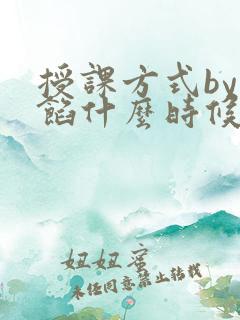 授課方式by
餡什麼時候
妞妞蜜
未經同意禁止轉載